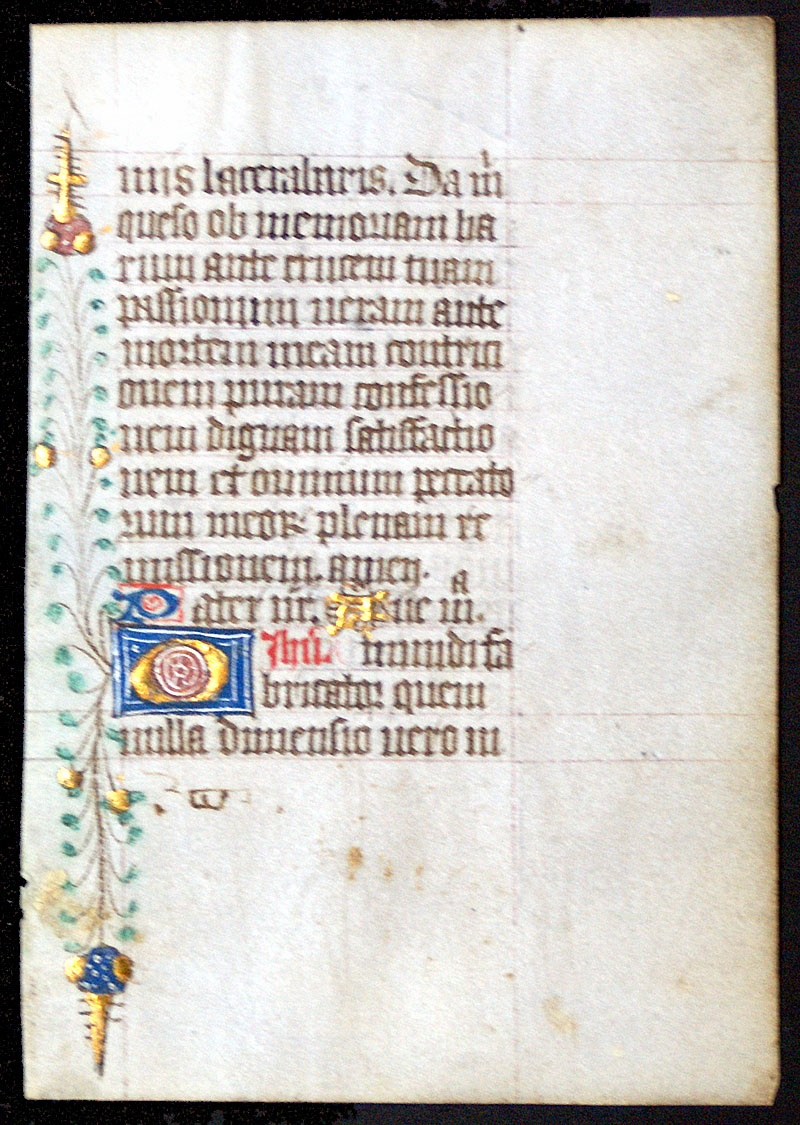 Da m̄
queso ob memoriam ha
rum ante crucem tuam
passionum ueram ante
mortem meam contrici
onem puram confessio
nem dignam satisfactio
nem et omnium peccato
rum meoꝝ plenam re
missionem. amen.
Pater nr̄. Aue m.a
O Ihū. mundi fa
bricator quem
nulla dimensio uero in